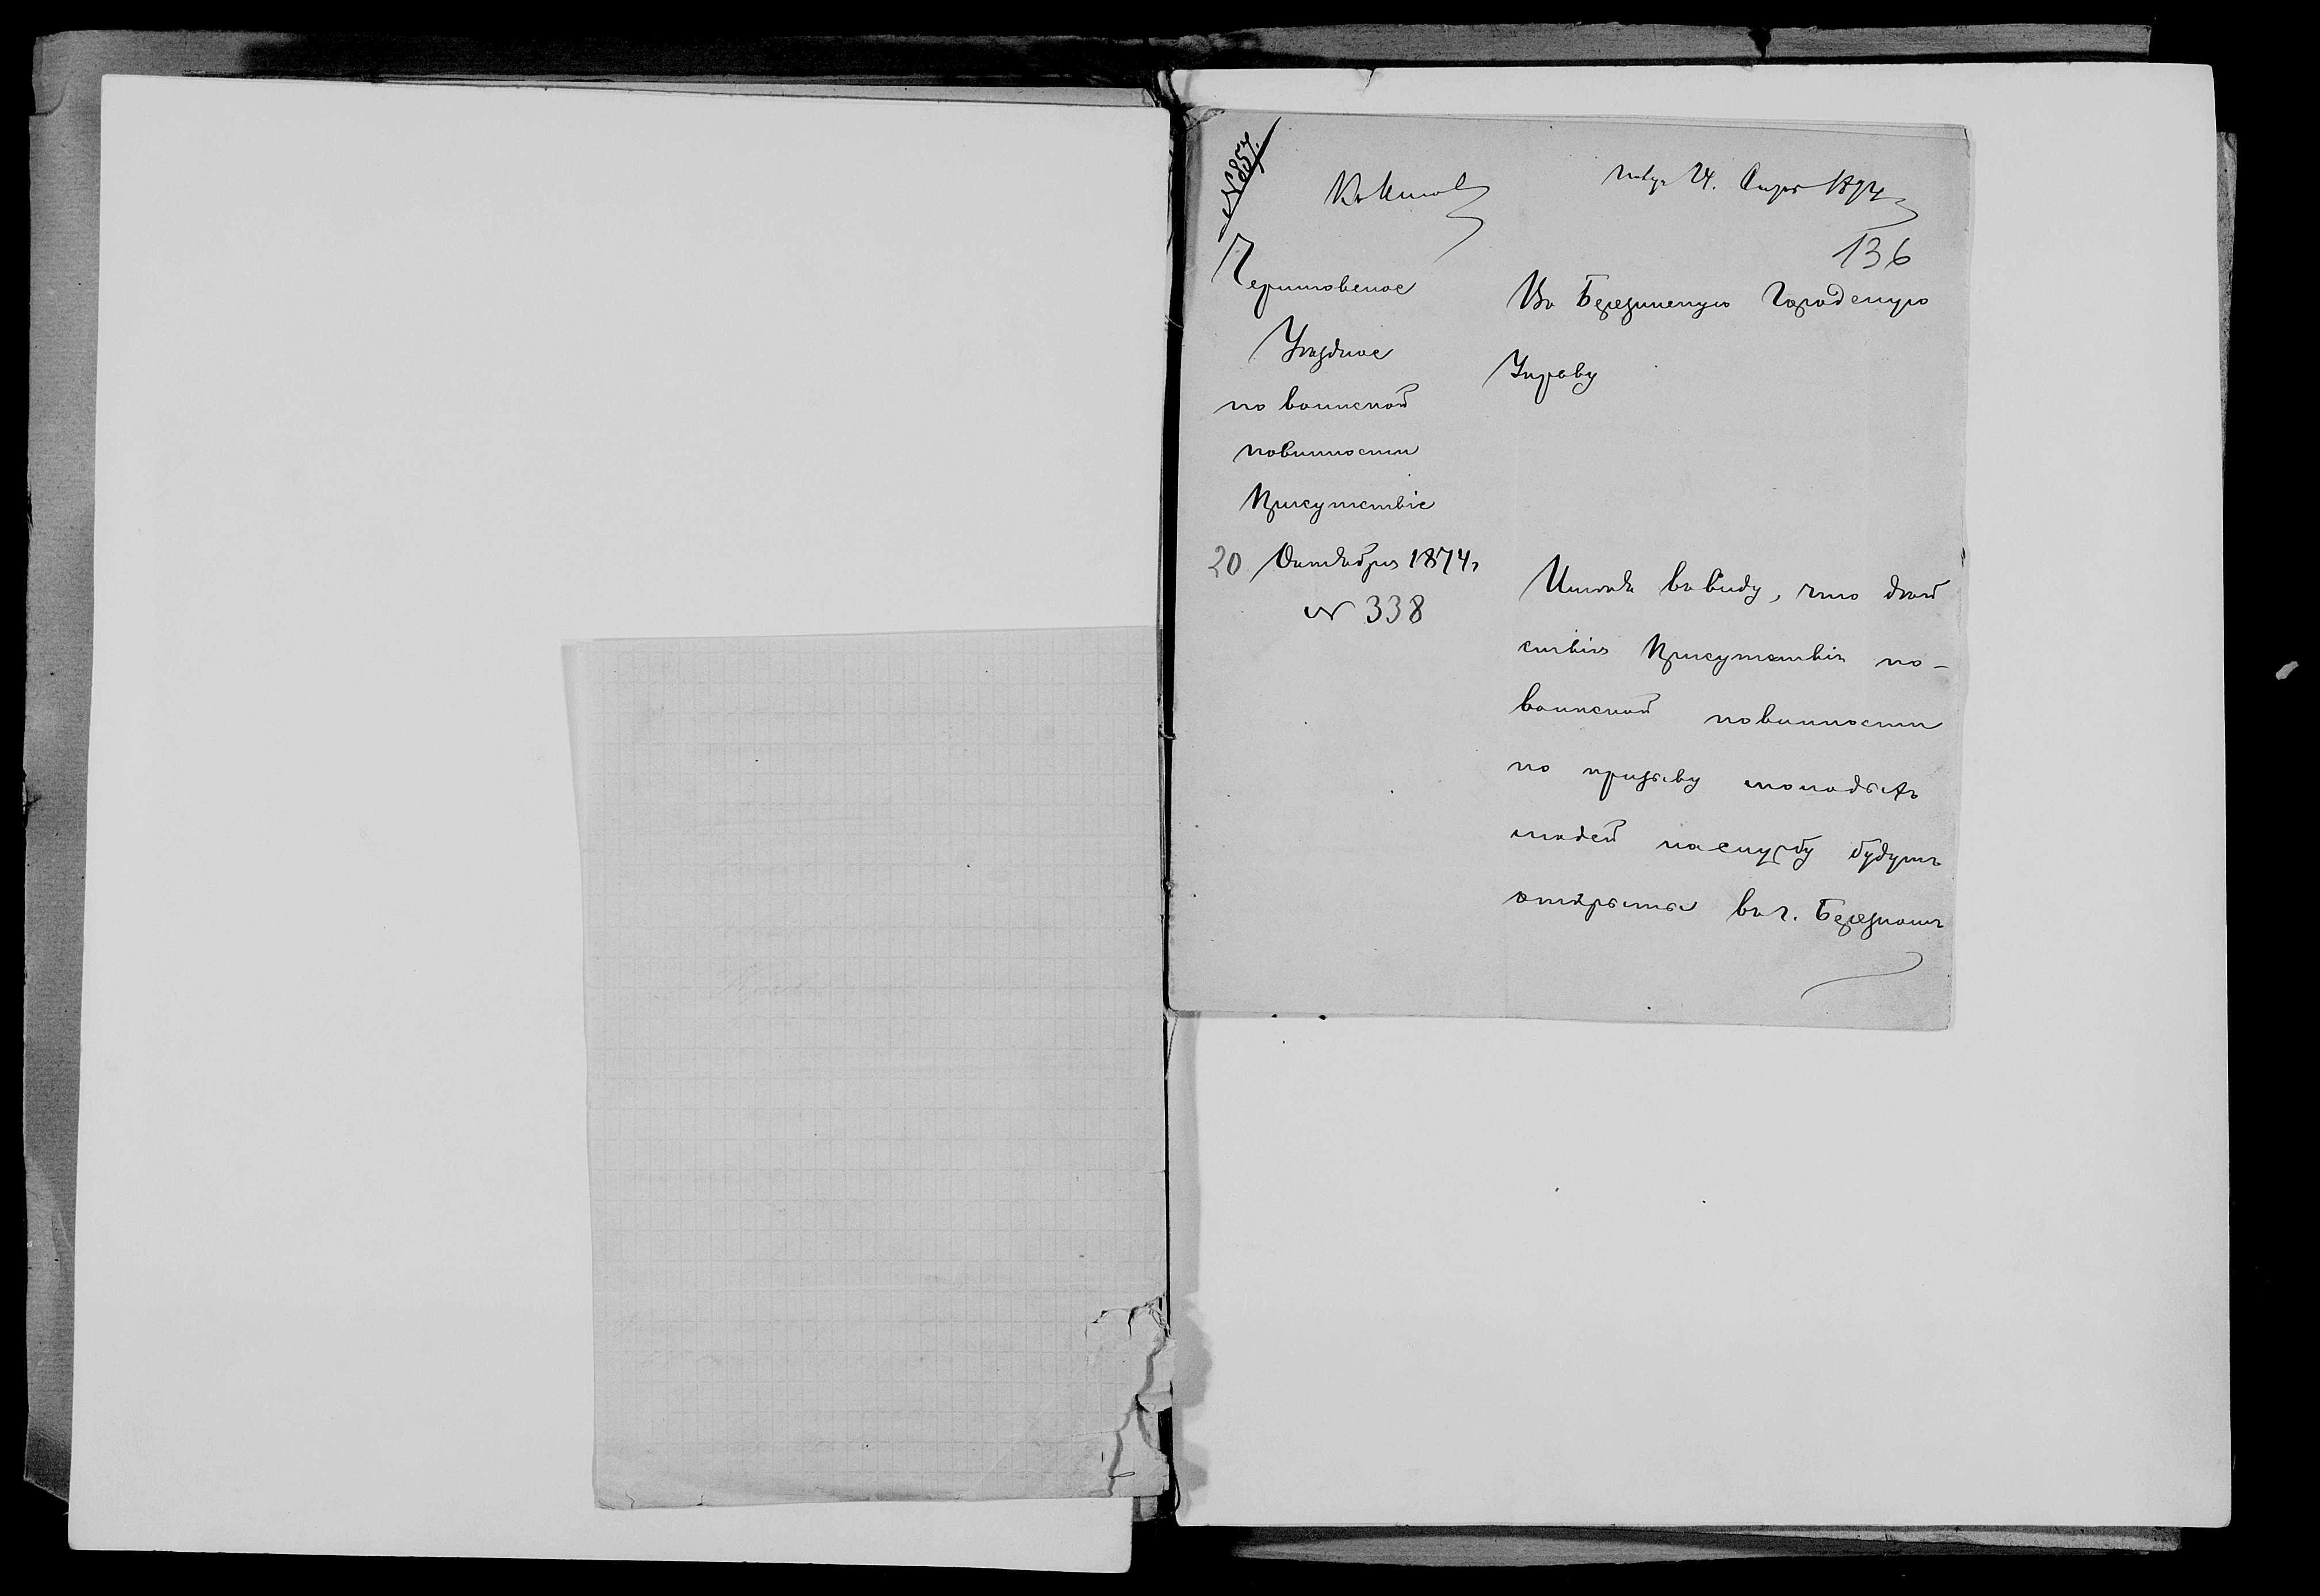 №857.
Къ делу
получ. 24. Октяб 1874
136
Черниговское
Уездное
по воинской
повинности
Присутствіе
20 Октября 1874 г
№ 338
Въ Березинскую Городскую
Управу
Имея въ виду, что дѣй
ствія Присутствія по-
воинской повинности
по призыву молодыхъ
людей на службу будутъ
открыты въ г. Березномъ